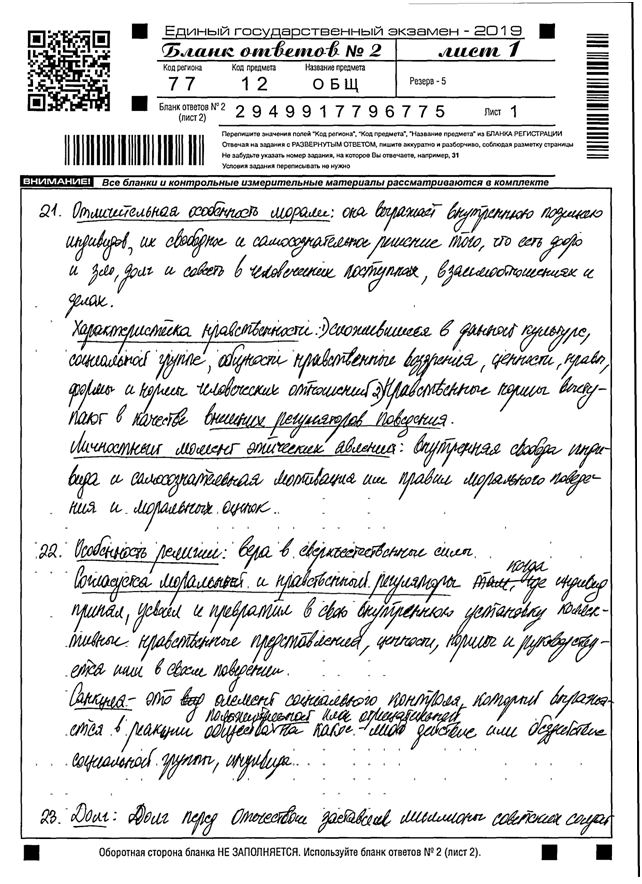 Единый государственный экзамен - 2019
Бланк ответов № 2 лист 1
Код региона Код предмета Название предмета
77 12 ОБЩ Резерв - 5
Бланк ответов № 2 (лист 2) 2949917796775 Лист 1
Перепишите значения полей "Код региона", "Код предмета", "Название предмета" из БЛАНКА РЕГИСТРАЦИИ
Отвечая на задания с РАЗВЕРНУТЫМ ОТВЕТОМ, пишите аккуратно и разборчиво, соблюдая разметку страницы
Не забудьте указать номер задания, на которое Вы отвечаете, например, 31
Условия задания переписывать не нужно
ВНИМАНИЕ! Все бланки и контрольные измерительные материалы рассматриваются в комплекте
21. Отличительная особенность морали: она выражает внутреннюю позицию
индивидов, их свободное и самосознательное решение того, что есть добро
и зло, долг и совесть в человеческих поступках, взаимоотношениях и
делах.
Характеристика нравственности: 1) сложившиеся в данной культуре,
социальной группе, общности нравственные воззрения, ценности, нравы,
формы и нормы человеческих отношений 2) Нравственные нормы высту-
пают в качестве внешних регуляторов поведения.
Личностный момент этических явления: внутренняя свобода инди-
вида и самосознательная мотивация им правил морального поведе-
ния и моральных оценок.
22. Особенность религии: вера в сверхъестественные силы.
моральный и нравственный регуляторы когда где индивид
принял, усвоил и превратил в свою внутреннюю установку коллек-
тивные нравственные представления, ценности, нормы и руководству-
ется ими в своем поведении.
Санкция - это элемент социального контроля, который выража-
положительной или отрицательной
ется в реакции общества на какое-либо действие или бездействие
социальной группы, индивида.
23. Долг: Долг перед Отечеством заставлял миллионы советских солдат
Оборотная сторона бланка НЕ ЗАПОЛНЯЕТСЯ. Используйте бланк ответов № 2 (лист 2).